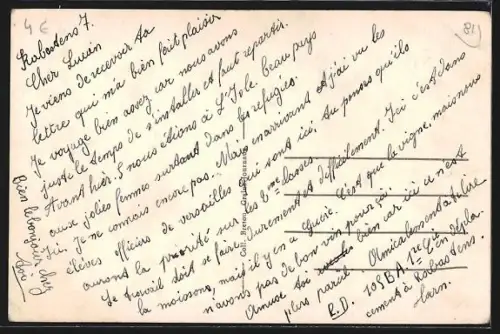 4 €
81
Rabastens 7.
Cher Lucien
Je viens de recevoir ta
lettre qui m'a bien fait plaisir
Je voyage bien assez car nous avons
juste le temps de s'installer et faut repartir.
Avant hier. 5 nous étions à L'Isle beau pays
aux jolies femmes surtout dans les refugiés.
Ici. Je ne connais encore pas. Mais en arrivant et j'ai vu les
élèves officiers de versailles qui sont ici, tu penses qu'ils
auront la priorité sur les 2me classes.
Le travail doit se faire durement et difficilement. Ici c'est dans
la moisson, mais il y en a guère. C'est que la vigne, mais nous
n'avons pas de bon vin pour ça.
Amuse toi bien car ici ce n'est
plus pareil. Amicalement à te lire
R.D. 108 BA. 1re Cie en dépla-
cement à Rabastens.
Tarn.
Bien le bonjour chez
toi.
Coll. Barreau